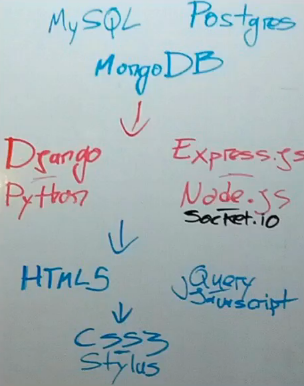 MySQL Postgres
MongoDB
Django Express.js
Python Node.js
Socket.io
HTML5 jQuery
Javascript
CSS3
Stylus